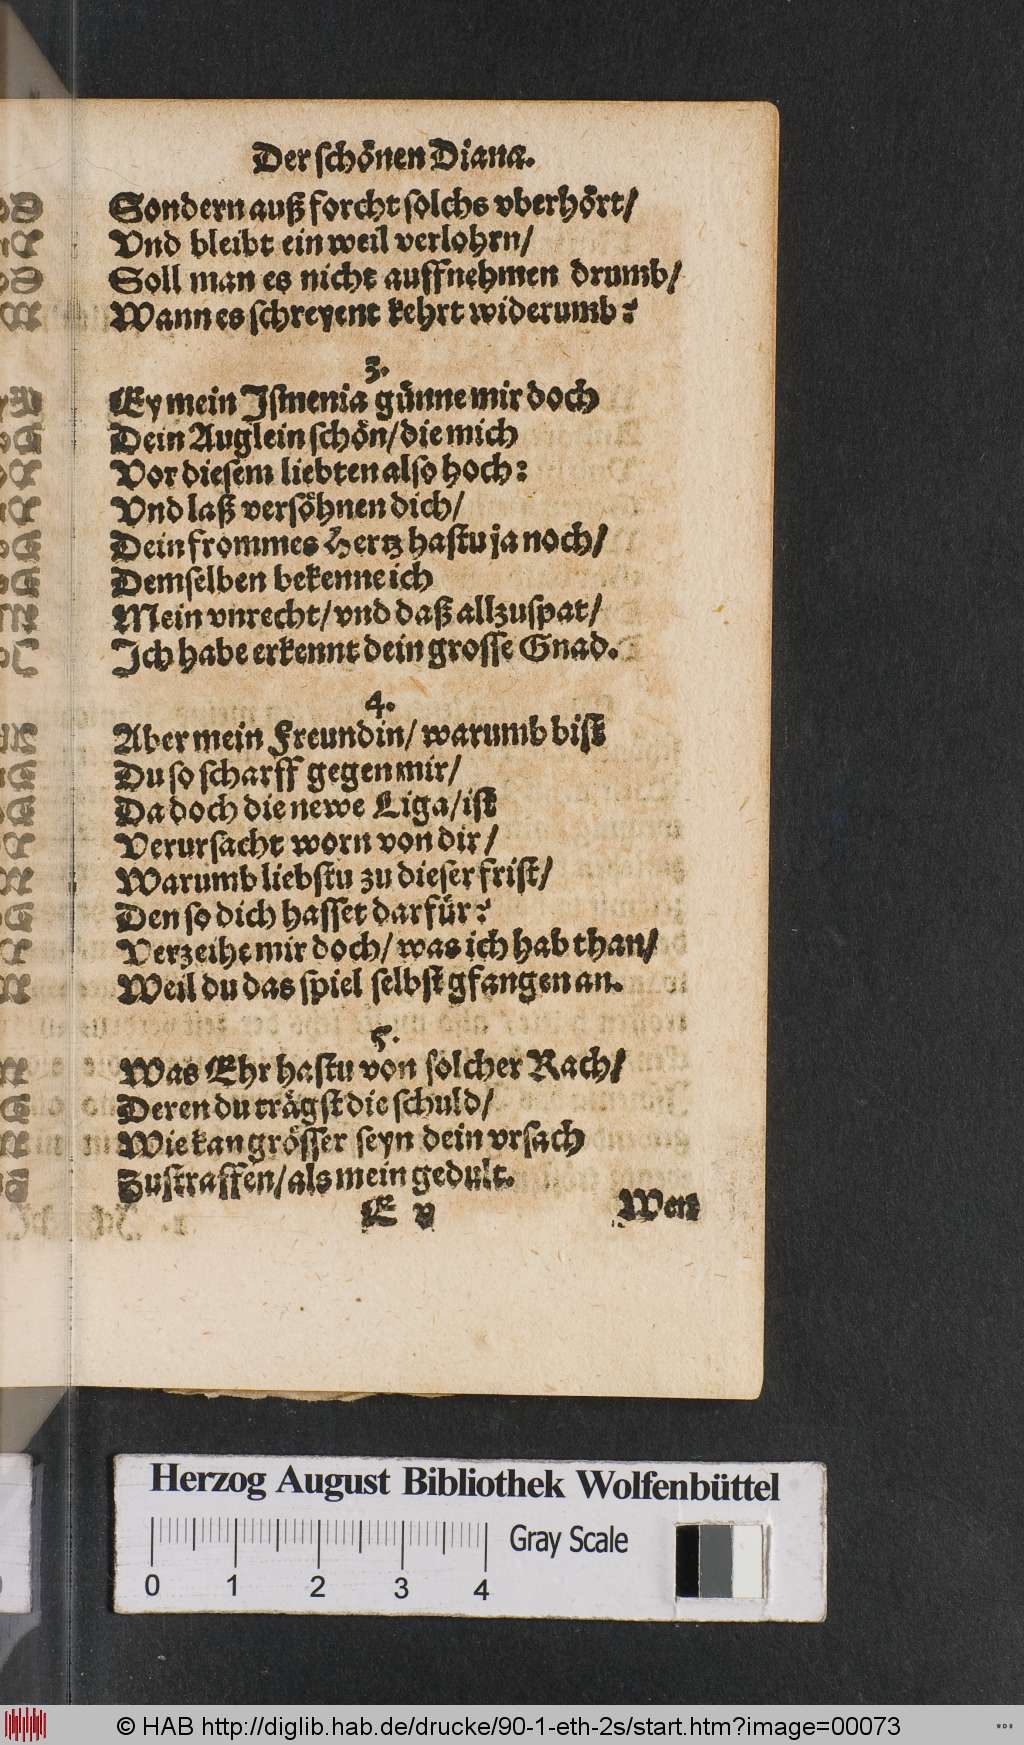 Der schönen Diana.
Sondern auß forcht solchs vberhört/
Vnd bleibt ein weil verlohrn/
Soll man es nicht auffnehmen drumb/
Wann es schreyent kehrt widerumb?
3.
Ey mein Ismenia günne mir doch
Dein Auglein schön/ die mich
Vor diesem liebten also hoch:
Vnd laß versöhnen dich/
Dein frommes Hertz hastu ja noch/
Demselben bekenne ich
Mein vnrecht/ vnd daß allzuspat/
Ich habe erkennt dein grosse Gnad.
4.
Aber mein Freundin/ warumb bist
Du so scharff gegen mir/
Da doch die newe Liga/ ist
Verursacht worn von dir/
Warumb liebstu zu dieser frist/
Den so dich hasset darfür?
Verzeihe mir doch/ was ich hab than/
Weil du das spiel selbst gfangen an.
5.
Was Ehr hastu von solcher Rach/
Deren du trägst die schuld/
Wie kan grösser seyn dein vrsach
Zustraffen/ als mein gedult.
E v
Wen
Herzog August Bibliothek Wolfenbüttel
Gray Scale
0 1 2 3 4
© HAB http://diglib.hab.de/drucke/90-1-eth-2s/start.htm?image=00073